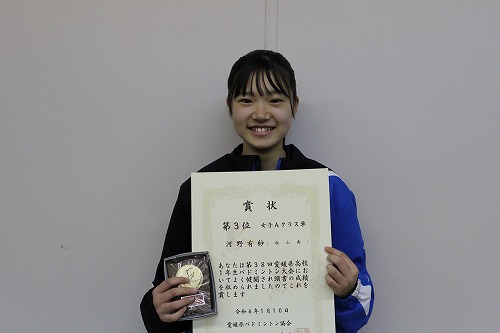 賞状
第3位 女子Aクラス単
河野有紗(松山南)
あなたは第38回愛媛県高校
1年生バドミントン大会にお
いてよく健闘され頭書の成績
を収められましたのでこれを
賞します
令和4年1月10日
愛媛県バドミントン協会